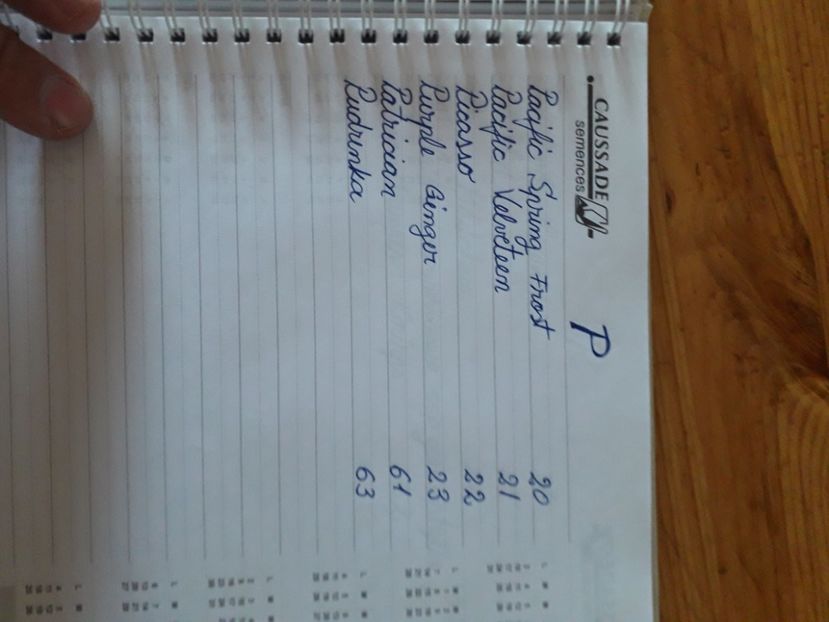 CAUSSADE
semences
P
Pacific Spring Frost 20
Pacific Velveteen 21
Picasso 22
Purple Ginger 23
Patrician 61
Pudrinka 63